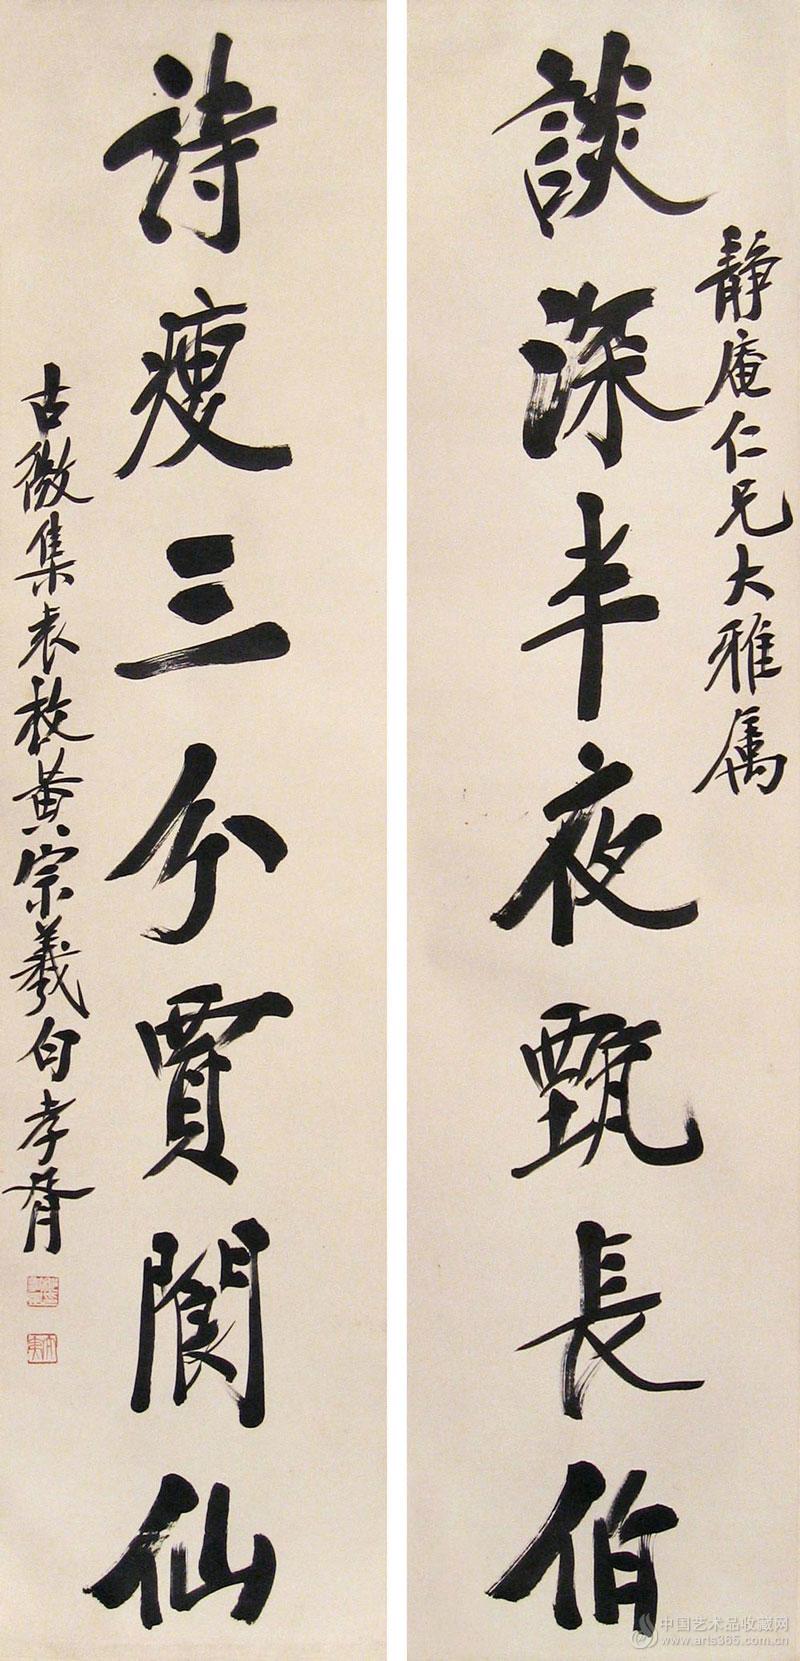 靜庵仁兄大雅屬
談深半夜甄長伯
詩瘦三分賈閬仙
古微集袁枚黃宗羲句孝胥
中国艺术品收藏网
www.arts365.com.cn